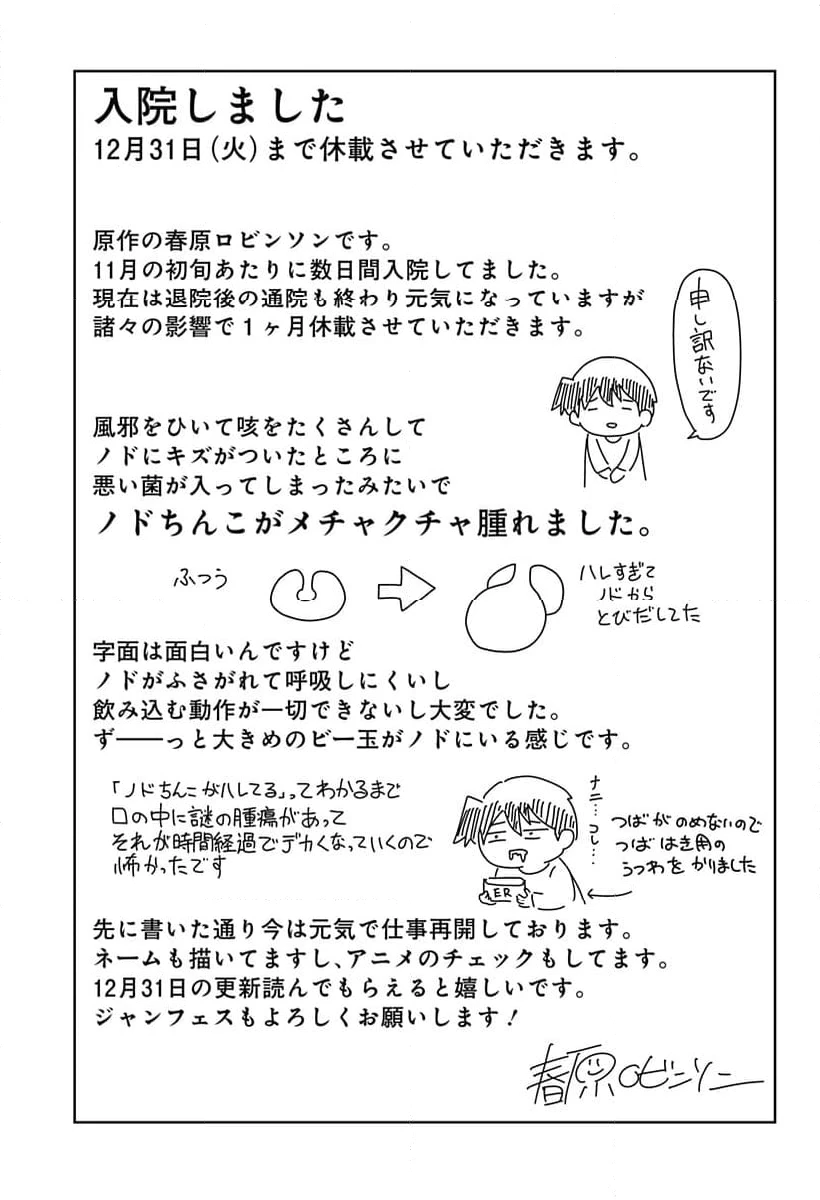 入院しました
12月31日(火)まで休載させていただきます。
原作の春原ロビンソンです。
11月の初旬あたりに数日間入院してました。
現在は退院後の通院も終わり元気になっていますが
諸々の影響で1ヶ月休載させていただきます。
申し訳ないです
風邪をひいて咳をたくさんして
ノドにキズがついたところに
悪い菌が入ってしまったみたいで
ノドちんこがメチャクチャ腫れました。
ふつう
ハレすぎて
ノドから
とびだしてた
字面は面白いんですけど
ノドがふさがれて呼吸しにくいし
飲み込む動作が一切できないし大変でした。
ず――っと大きめのビー玉がノドにいる感じです。
「ノドちんこがハレてる」ってわかるまで
口の中に謎の腫瘍があって
それが時間経過でデカくなっていくので
怖かったです
ナニ…
コレ…
つばがのめないので
つばはき用の
うつわをかりました
ER
先に書いた通り今は元気で仕事再開しております。
ネームも描いてますし、アニメのチェックもしてます。
12月31日の更新読んでもらえると嬉しいです。
ジャンフェスもよろしくお願いします!
春原ロビンソン